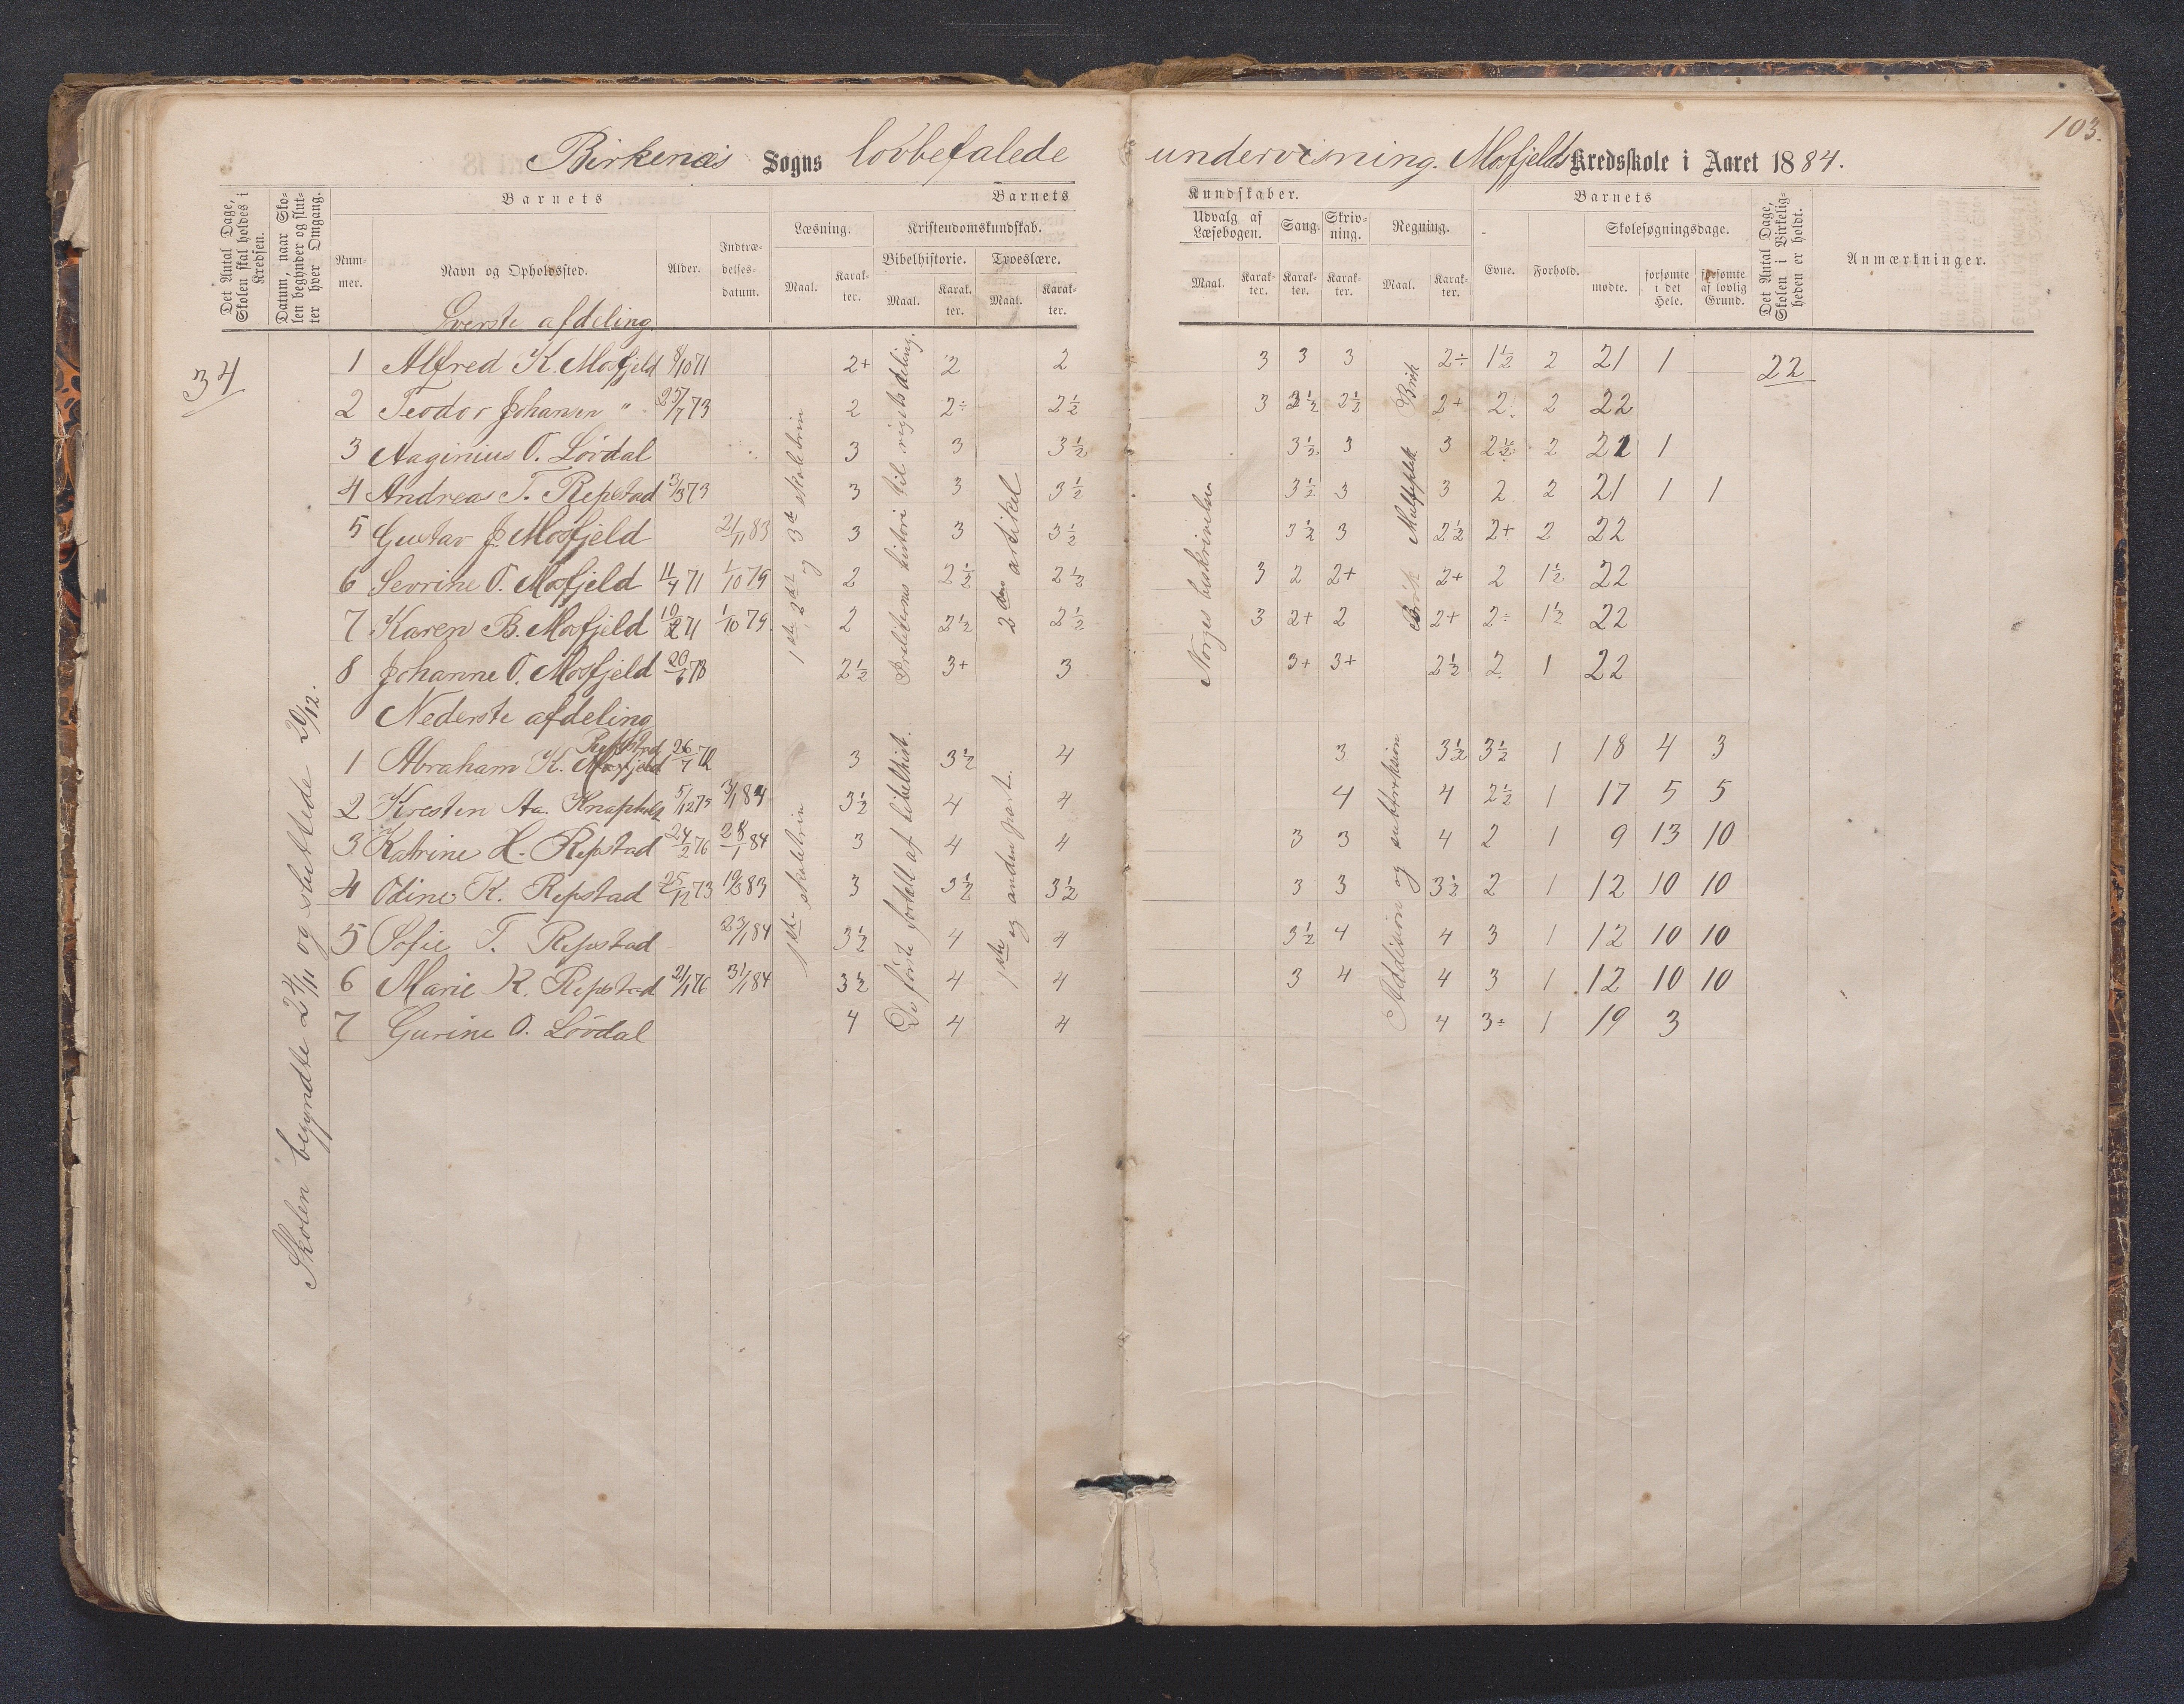 103.
Birkenæs Sogns lovbefalede undervisning. Mosfjelds Kredsskole i Aaret 1884.
Det Antal Dage, Skolen skal holdes i Kredsen.
Datum, naar Skolen begynder og slutter hver Omgang.
Barnets
Nummer.
Navn og Opholdssted.
Alder.
Indtrædelsesdatum.
Barnets Kundskaber.
Læsning.
Maal. Karakter.
Kristendomskundskab.
Bibelhistorie. Troeslære.
Maal. Karakter. Maal. Karakter.
Udvalg af Læsebogen. Sang. Skrivning. Regning.
Maal. Karakter. Karakter. Karakter. Maal. Karakter.
Barnets
Evne. Forhold.
Skolesøgningsdage.
mødte. forsømte i det Hele. forsømte af lovlig Grund.
Det Antal Dage, Skolen i Virkeligheden er holdt.
Anmærkninger.
34
Skolen begyndte 24/11 og sluttede 20/12.
Øverste afdeling
1 Alfred K. Mosfjeld 8/10 71 2+ 2 2 3 3 3 2÷ 1½ 2 21 1 22
2 Teodor Johansen " 25/7 73 2 2÷ 2½ 3 3½ 2½ 2+ 2 2 22
3 Aaginius O. Lövdal 3 3 3½ 3½ 3 3 2½ 2 21 1
4 Andreas T. Repstad 5/3 73 3 3 3½ 3½ 3 3 2 2 21 1 1
5 Gustav J. Mosfjeld 21/11 83 3 3 3½ 3½ 3 2½ 2+ 2 22
6 Sevrine O. Mosfjeld 11/4 71 1/10 79 2 2½ 2½ 3 2 2+ 2+ 2 1½ 22
7 Karen B. Mosfjeld 10/2 71 1/10 79. 2 2½ 2½ 3 2+ 2 2+ 2÷ 1½ 22
8 Johanne O. Mosfjeld 20/6 73 2½ 3+ 3 3+ 3+ 2½ 2 1 22
1ste, 2det og 3de skoletrin
Israeliternes historie til rigets deling.
2den artikel
Norges beskrivelse
Multiplik
Brök
Brök
Nederste afdeling
1 Abraham K. Repstad 26/7 72 3 3½ 4 3 3½ 3½ 1 18 4 3
2 Kresten Aa. Knapholt 5/12 75 3/1 84 3½ 4 4 4 4 2½ 1 17 5 5
3 Katrine H. Repstad 24/2 76 28/1 84 3 4 4 3 3 4 2 1 9 13 10
4 Odine K. Repstad 25/12 73 19/3 83 3 3½ 3½ 3 3 3½ 2 1 12 10 10
5 Sofie T. Repstad 23/1 84 3½ 4 4 3½ 4 4 3 1 12 10 10
6 Marie K. Repstad 21/1 76 31/1 84 3½ 4 4 3 4 4 3 1 12 10 10
7 Gurine O. Lövdal 4 4 4 4 3÷ 1 19 3
1ste skoletrin
De förste fortæll af bibelhist.
1ste og anden part.
Addision og subtraksion